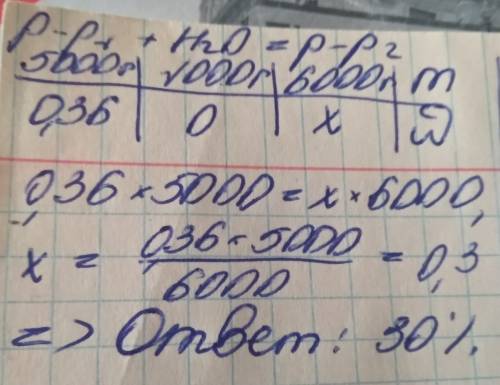 р-р1 + H2O = р-р2
5000г | 1000г | 6000г | m
0,36 | 0 | x | ω
0,36 × 5000 = x × 6000,
x = 0,36 × 5000 / 6000 = 0,3
=> Ответ: 30%.